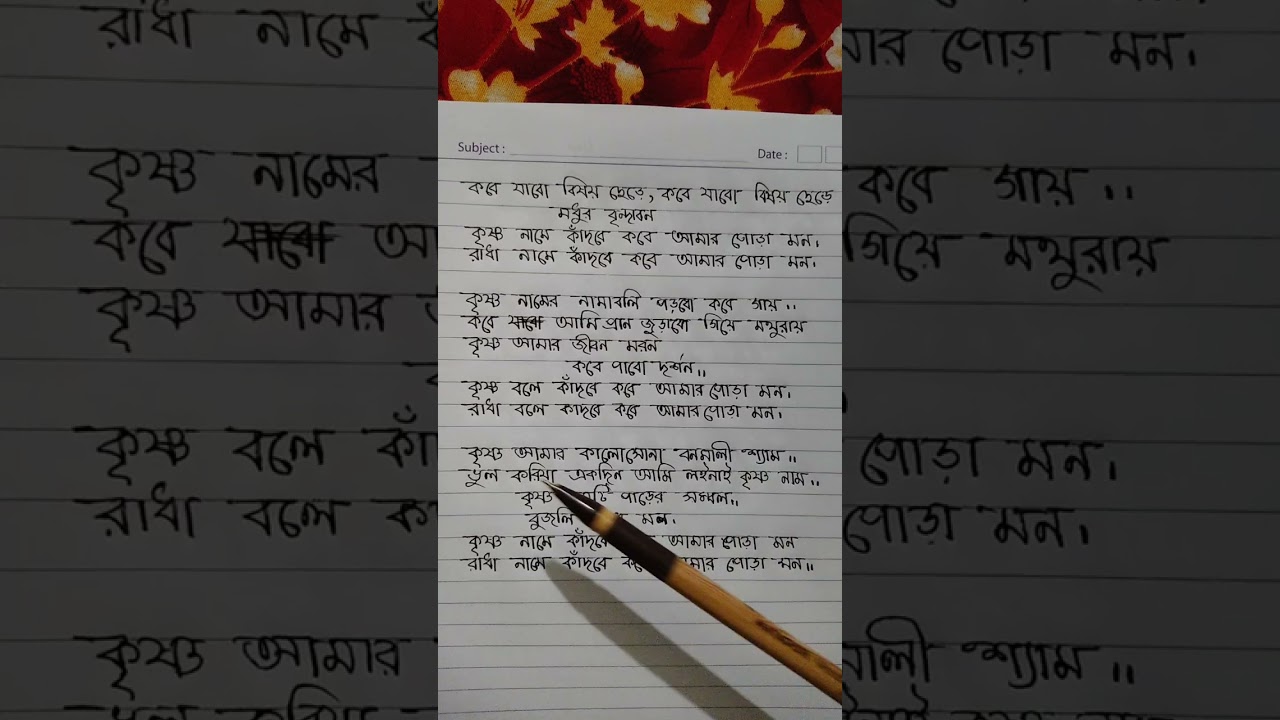 Subject :
Date :
কবে যাবো বিষয় ছেড়ে, কবে যাবো বিষয় ছেড়ে
মধুর বৃন্দাবন
কৃষ্ণ নামে কাঁদবে কবে আমার পোড়া মন।
রাধা নামে কাঁদবে কবে আমার পোড়া মন।
কৃষ্ণ নামের নামাবলি পড়বো কবে গায়।।
কবে আমি প্রান জুড়াবো গিয়ে মথুরায়
কৃষ্ণ আমার জীবন মরন
কবে পাবো দর্শন।।
কৃষ্ণ বলে কাঁদবে কবে আমার পোড়া মন।
রাধা বলে কাঁদবে কবে আমার পোড়া মন।
কৃষ্ণ আমার কালোসোনা বনমালী শ্যাম।।
ভুল করিয়া একদিন আমি লইনাই কৃষ্ণ নাম।।
কৃষ্ণ পাড়ের সম্বল।।
বুজলি মন।
কৃষ্ণ নামে কাঁদবে আমার পোড়া মন
রাধা নামে কাঁদবে কবে আমার পোড়া মন।।